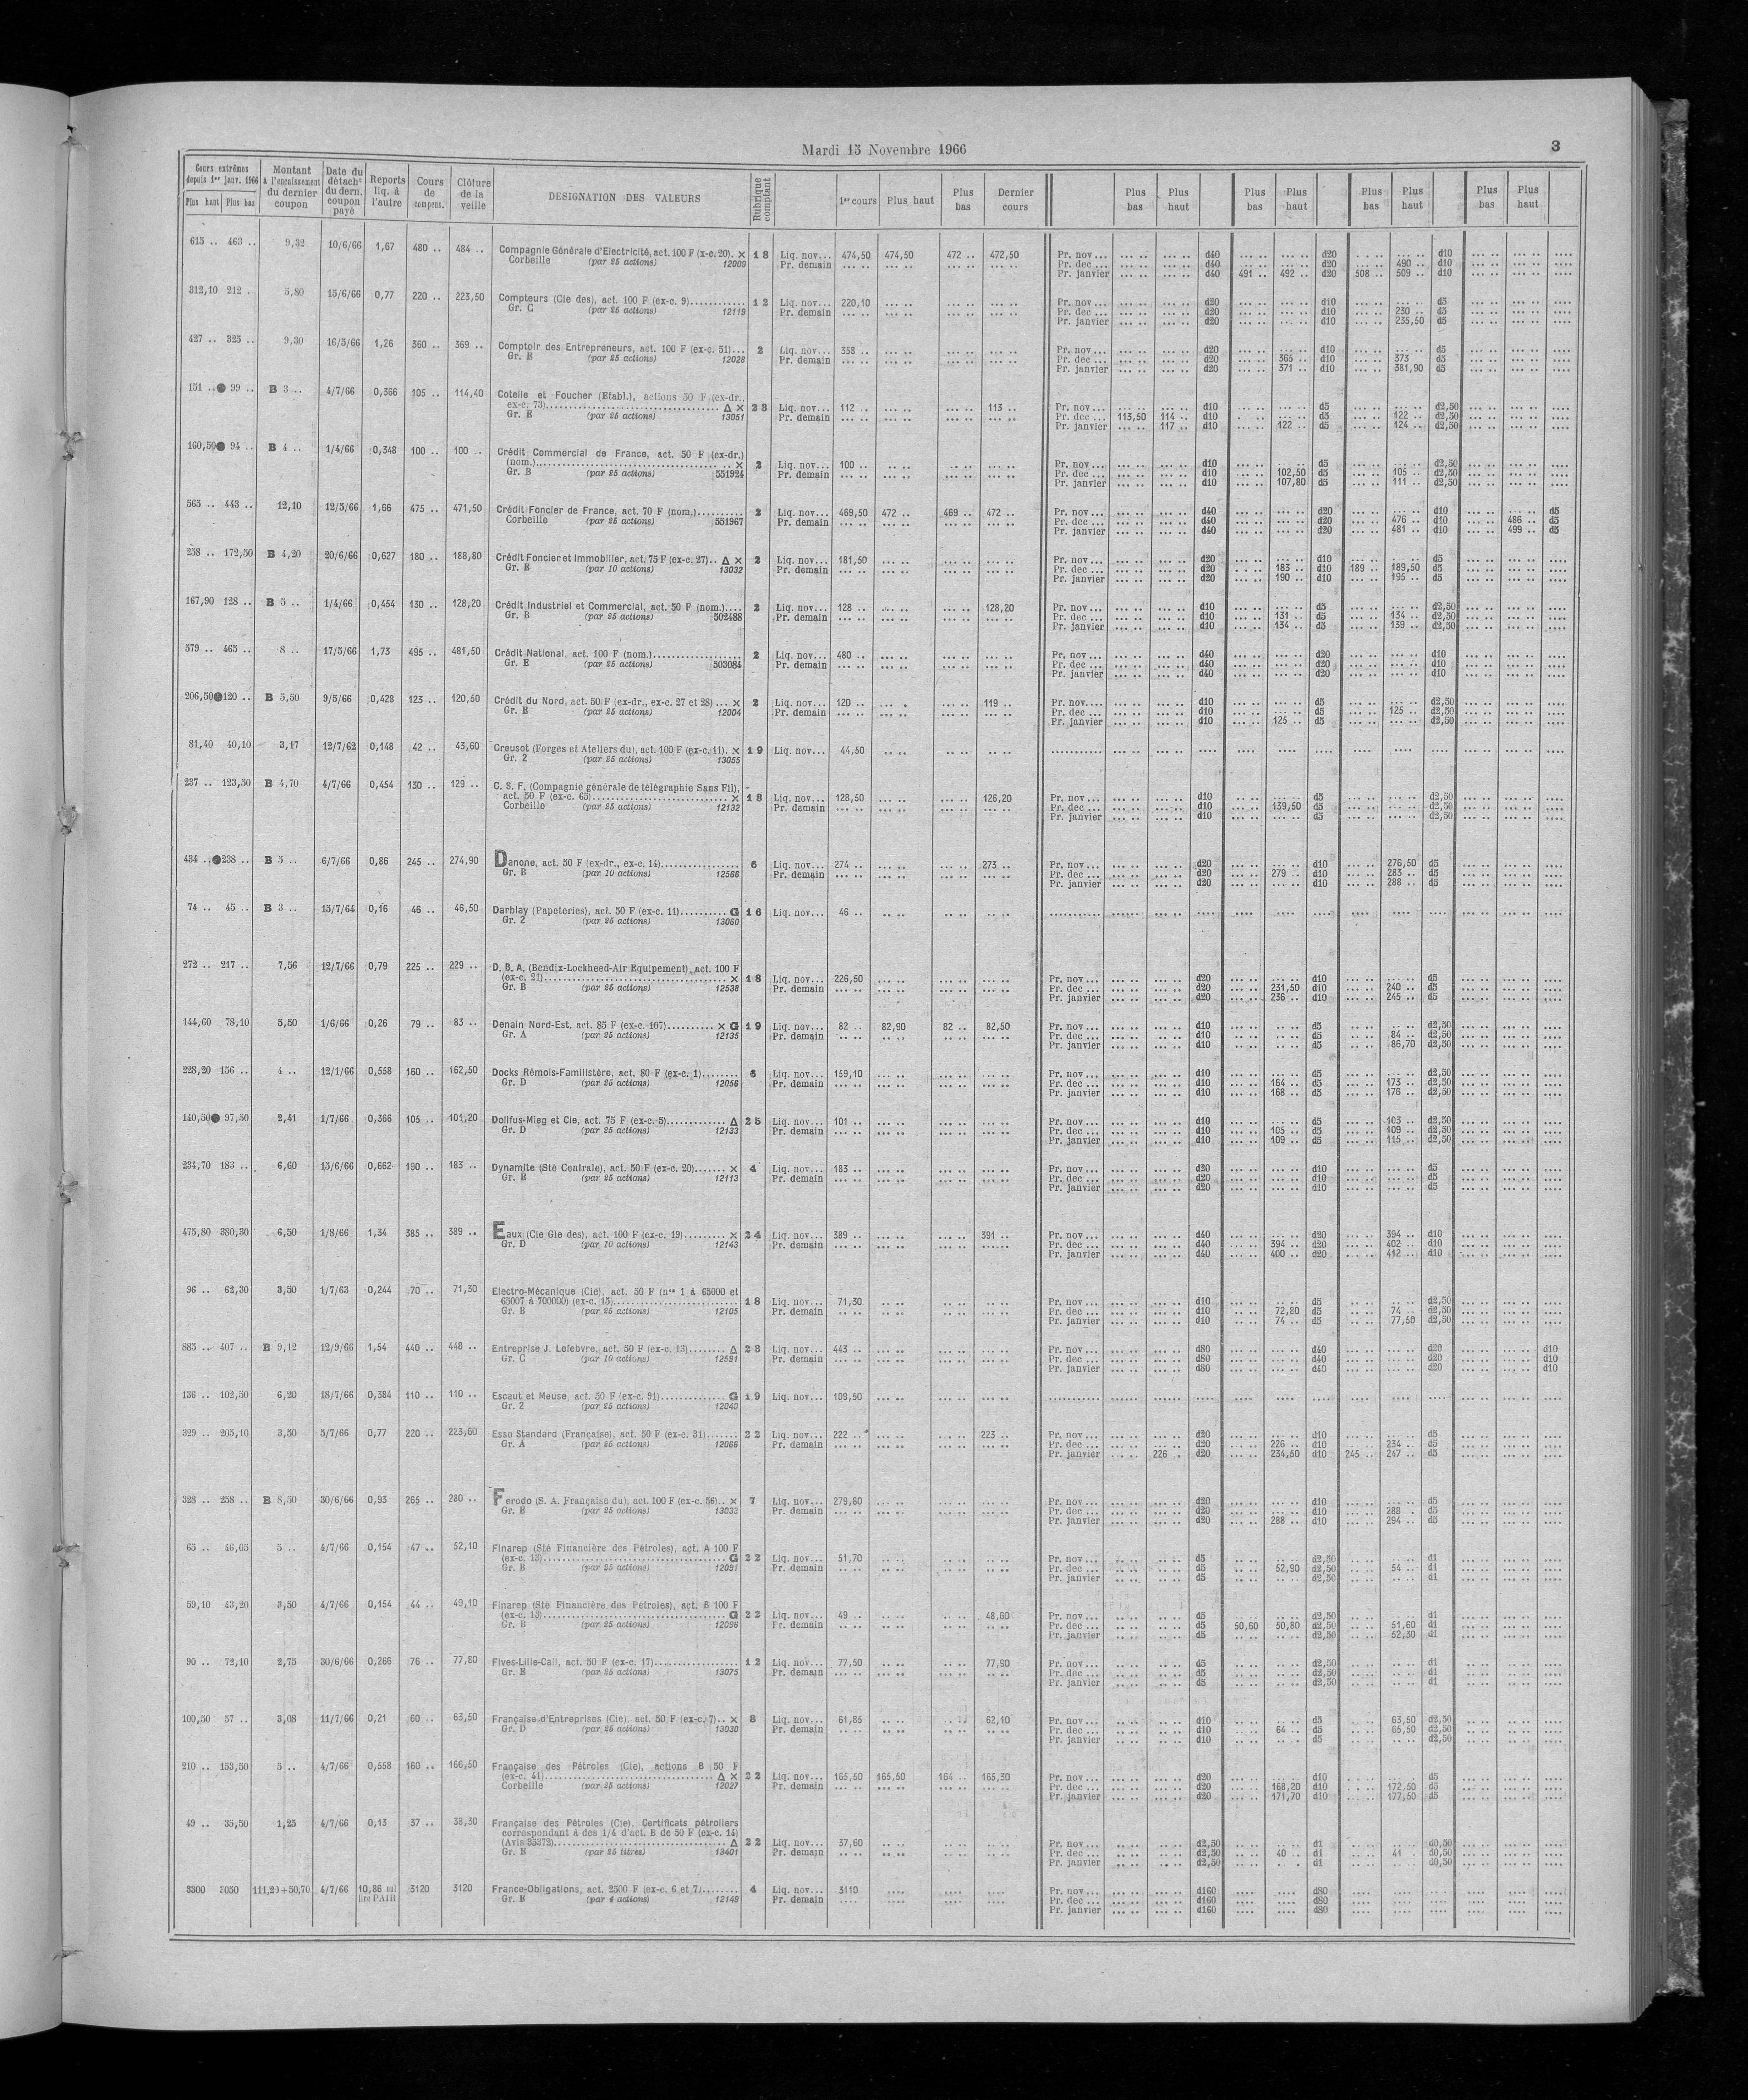 Mardi 15 Novembre 1966
3
Cours extrêmes depuis 1er janv. 1966 Plus haut Plus bas | Montant à l'encaissement du dernier coupon | Date du détacht du dern. coupon payé | Reports liq. à l'autre | Cours de compens. | Clôture de la veille | DESIGNATION DES VALEURS | Rubrique comptant | 1er cours | Plus haut | Plus bas | Dernier cours | Plus bas | Plus haut | Plus bas | Plus haut | Plus bas | Plus haut | Plus bas | Plus haut
615 .. 463 .. 9,32 10/6/66 1,67 480 .. 484 .. Compagnie Générale d'Electricité, act. 100 F (x-c. 20). × 18 Liq. nov... 474,50 474,50 472 .. 472,50 Pr. nov... d40 d20 d10
Corbeille (par 25 actions) 12009 Pr. demain Pr. dec ... d40 d20 490 .. d10
Pr. janvier d40 491 .. 492 .. d20 508 .. 509 .. d10
312,10 212 . 5,80 15/6/66 0,77 220 .. 223,50 Compteurs (Cie des), act. 100 F (ex-c. 9) 12 Liq. nov... 220,10 Pr. nov... d20 d10 d5
Gr. C (par 25 actions) 12119 Pr. demain Pr. dec ... d20 d10 230 .. d5
Pr. janvier d20 d10 235,50 d5
427 .. 325 .. 9,30 16/5/66 1,26 360 .. 369 .. Comptoir des Entrepreneurs, act. 100 F (ex-c. 51)... 2 Liq. nov... 358 .. Pr. nov... d20 d10 d5
Gr. E (par 25 actions) 12028 Pr. demain Pr. dec ... d20 365 .. d10 373 d5
Pr. janvier d20 371 .. d10 381,90 d5
151 ..● 99 .. B 3 .. 4/7/66 0,366 105 .. 114,40 Cotelle et Foucher (Etabl.), actions 50 F (ex-dr.,
ex-c. 73) Δ × 28 Liq. nov... 112 .. 113 .. Pr. nov... d10 d5 d2,50
Gr. E (par 25 actions) 13051 Pr. demain Pr. dec ... 113,50 114 .. d10 d5 122 .. d2,50
Pr. janvier 117 .. d10 122 .. d5 124 .. d2,50
160,50● 94 .. B 4 .. 1/4/66 0,348 100 .. 100 .. Crédit Commercial de France, act. 50 F (ex-dr.)
(nom.) × 2 Liq. nov... 100 .. Pr. nov... d10 d5 d2,50
Gr. B (par 25 actions) 551924 Pr. demain Pr. dec ... d10 102,50 d5 105 .. d2,50
Pr. janvier d10 107,80 d5 111 .. d2,50
565 .. 443 .. 12,10 12/5/66 1,66 475 .. 471,50 Crédit Foncier de France, act. 70 F (nom.) 2 Liq. nov... 469,50 472 .. 469 .. 472 .. Pr. nov... d40 d20 d10 d5
Corbeille (par 25 actions) 551967 Pr. demain Pr. dec ... d40 d20 476 .. d10 486 .. d5
Pr. janvier d40 d20 481 .. d10 499 .. d5
258 .. 172,50 B 4,20 20/6/66 0,627 180 .. 188,80 Crédit Foncier et Immobilier, act. 75 F (ex-c. 27).. Δ × 2 Liq. nov... 181,50 Pr. nov... d20 d10 d5
Gr. E (par 10 actions) 13032 Pr. demain Pr. dec ... d20 183 .. d10 189 .. 189,50 d5
Pr. janvier d20 190 .. d10 195 .. d5
167,90 128 .. B 5 .. 1/4/66 0,454 130 .. 128,20 Crédit Industriel et Commercial, act. 50 F (nom.).... 2 Liq. nov... 128 .. 128,20 Pr. nov... d10 d5 d2,50
Gr. B (par 25 actions) 502488 Pr. demain Pr. dec ... d10 131 .. d5 134 .. d2,50
Pr. janvier d10 134 .. d5 139 .. d2,50
579 .. 465 .. 8 .. 17/5/66 1,73 495 .. 481,50 Crédit National, act. 100 F (nom.) 2 Liq. nov... 480 .. Pr. nov... d40 d20 d10
Gr. E (par 25 actions) 503084 Pr. demain Pr. dec ... d40 d20 d10
Pr. janvier d40 d20 d10
206,50●120 .. B 5,50 9/5/66 0,428 123 .. 120,50 Crédit du Nord, act. 50 F (ex-dr., ex-c. 27 et 28) ... × 2 Liq. nov... 120 .. 119 .. Pr. nov.... d10 d5 d2,50
Gr. E (par 25 actions) 12004 Pr. demain Pr. dec ... d10 d5 125 .. d2,50
Pr. janvier d10 125 .. d5 d2,50
81,40 40,10 3,17 12/7/62 0,148 42 .. 43,60 Creusot (Forges et Ateliers du), act. 100 F (ex-c. 11). × 19 Liq. nov... 44,50
Gr. 2 (par 25 actions) 13055
237 .. 123,50 B 4,70 4/7/66 0,454 130 .. 129 .. C. S. F. (Compagnie générale de télégraphie Sans Fil),
act. 50 F (ex-c. 65) × 18 Liq. nov... 128,50 126,20 Pr. nov... d10 d5 d2,50
Corbeille (par 25 actions) 12132 Pr. demain Pr. dec ... d10 139,50 d5 d2,50
Pr. janvier d10 d5 d2,50
434 ..●238 .. B 5 .. 6/7/66 0,86 245 .. 274,90 Danone, act. 50 F (ex-dr., ex-c. 14) 6 Liq. nov... 274 .. 273 .. Pr. nov... d20 d10 276,50 d5
Gr. B (par 10 actions) 12566 Pr. demain Pr. dec ... d20 279 .. d10 283 .. d5
Pr. janvier d20 d10 288 .. d5
74 .. 45 .. B 3 .. 15/7/64 0,16 46 .. 46,50 Darblay (Papeteries), act. 50 F (ex-c. 11) G 16 Liq. nov... 46 ..
Gr. 2 (par 25 actions) 13060
272 .. 217 .. 7,56 12/7/66 0,79 225 .. 229 .. D. B. A. (Bendix-Lockheed-Air Equipement), act. 100 F
(ex-c. 21) × 18 Liq. nov... 226,50 Pr. nov... d20 d10 d5
Gr. B (par 25 actions) 12538 Pr. demain Pr. dec ... d20 231,50 d10 240 .. d5
Pr. janvier d20 236 .. d10 245 .. d5
144,60 78,10 5,50 1/6/66 0,26 79 .. 83 .. Denain Nord-Est, act. 85 F (ex-c. 107) × G 19 Liq. nov... 82 .. 82,90 82 .. 82,50 Pr. nov... d10 d5 d2,50
Gr. A (par 25 actions) 12135 Pr. demain Pr. dec ... d10 d5 84 .. d2,50
Pr. janvier d10 d5 86,70 d2,50
228,20 156 .. 4 .. 12/1/66 0,558 160 .. 162,50 Docks Rémois-Familistère, act. 80 F (ex-c. 1) 6 Liq. nov... 159,10 Pr. nov... d10 d5 d2,50
Gr. D (par 25 actions) 12056 Pr. demain Pr. dec ... d10 164 .. d5 173 .. d2,50
Pr. janvier d10 168 .. d5 176 .. d2,50
140,50● 97,50 2,41 1/7/66 0,366 105 .. 101,20 Dollfus-Mieg et Cie, act. 75 F (ex-c. 5) Δ 25 Liq. nov... 101 .. Pr. nov... d10 d5 103 .. d2,50
Gr. D (par 25 actions) 12133 Pr. demain Pr. dec ... d10 105 .. d5 109 .. d2,50
Pr. janvier d10 109 .. d5 115 .. d2,50
234,70 183 .. 6,60 15/6/66 0,662 190 .. 183 .. Dynamite (Sté Centrale), act. 50 F (ex-c. 20) × 4 Liq. nov... 183 .. Pr. nov... d20 d10 d5
Gr. E (par 25 actions) 12113 Pr. demain Pr. dec ... d20 d10 d5
Pr. janvier d20 d10 d5
475,80 380,30 6,50 1/8/66 1,34 385 .. 389 .. Eaux (Cie Gle des), act. 100 F (ex-c. 19) × 24 Liq. nov... 389 .. 391 .. Pr. nov... d40 d20 394 .. d10
Gr. D (par 10 actions) 12143 Pr. demain Pr. dec ... d40 394 .. d20 402 .. d10
Pr. janvier d40 400 .. d20 412 .. d10
96 .. 62,30 3,50 1/7/63 0,244 70 .. 71,30 Electro-Mécanique (Cie), act. 50 F (nos 1 à 65000 et
65007 à 700000) (ex-c. 15) 18 Liq. nov... 71,30 Pr. nov... d10 d5 d2,50
Gr. B (par 25 actions) 12105 Pr. demain Pr. dec ... d10 72,80 d5 74 .. d2,50
Pr. janvier d10 74 .. d5 77,50 d2,50
885 .. 407 .. B 9,12 12/9/66 1,54 440 .. 448 .. Entreprise J. Lefebvre, act. 50 F (ex-c. 13) Δ 28 Liq. nov... 443 .. Pr. nov... d80 d40 d20 d10
Gr. C (par 10 actions) 12591 Pr. demain Pr. dec ... d80 d40 d20 d10
Pr. janvier d80 d40 d20 d10
136 .. 102,50 6,20 18/7/66 0,384 110 .. 110 .. Escaut et Meuse, act. 50 F (ex-c. 91) G 19 Liq. nov... 109,50
Gr. 2 (par 25 actions) 12040
329 .. 205,10 3,50 5/7/66 0,77 220 .. 223,60 Esso Standard (Française), act. 50 F (ex-c. 31) 22 Liq. nov... 222 .. 223 .. Pr. nov... d20 d10 d5
Gr. A (par 25 actions) 12066 Pr. demain Pr. dec ... d20 226 .. d10 234 .. d5
Pr. janvier 226 .. d20 234,50 d10 245 .. 247 .. d5
328 .. 258 .. B 8,50 30/6/66 0,93 265 .. 280 .. Ferodo (S. A. Française du), act. 100 F (ex-c. 56).. × 7 Liq. nov... 279,80 Pr. nov... d20 d10 d5
Gr. E (par 25 actions) 13033 Pr. demain Pr. dec ... d20 d10 288 . d5
Pr. janvier d20 288 .. d10 294 .. d5
65 .. 46,05 5 .. 4/7/66 0,154 47 .. 52,10 Finarep (Sté Financière des Pétroles), act. A 100 F
(ex-c. 13) G 22 Liq. nov... 51,70 Pr. nov... d5 d2,50 d1
Gr. B (par 25 actions) 12091 Pr. demain Pr. dec ... d5 52,90 d2,50 54 .. d1
Pr. janvier d5 d2,50 d1
59,10 43,20 3,50 4/7/66 0,154 44 .. 49,10 Finarep (Sté Financière des Pétroles), act. B 100 F
(ex-c. 13) G 22 Liq. nov... 49 .. 48,60 Pr. nov... d5 d2,50 d1
Gr. B (par 25 actions) 12096 Pr. demain Pr. dec ... d5 50,60 50,80 d2,50 51,60 d1
Pr. janvier d5 d2,50 52,30 d1
90 .. 72,10 2,75 30/6/66 0,266 76 .. 77,80 Fives-Lille-Cail, act. 50 F (ex-c. 17) 12 Liq. nov... 77,50 77,90 Pr. nov... d5 d2,50 d1
Gr. E (par 25 actions) 13075 Pr. demain Pr. dec ... d5 d2,50 d1
Pr. janvier d5 d2,50 d1
100,50 57 .. 3,08 11/7/66 0,21 60 .. 63,50 Française d'Entreprises (Cie), act. 50 F (ex-c. 7).. × 8 Liq. nov... 61,85 62,10 Pr. nov... d10 d5 63,50 d2,50
Gr. D (par 25 actions) 13030 Pr. demain Pr. dec ... d10 64 .. d5 65,50 d2,50
Pr. janvier d10 d5 d2,50
210 .. 153,50 5 .. 4/7/66 0,558 160 .. 166,50 Française des Pétroles (Cie), actions B 50 F
(ex-c. 41) Δ × 22 Liq. nov... 165,50 165,50 164 .. 165,30 Pr. nov... d20 d10 d5
Corbeille (par 25 actions) 12027 Pr. demain Pr. dec ... d20 168,20 d10 172,50 d5
Pr. janvier d20 171,70 d10 177,50 d5
49 .. 35,50 1,25 4/7/66 0,13 37 .. 38,30 Française des Pétroles (Cie), Certificats pétroliers
correspondant à des 1/4 d'act. B de 50 F (ex-c. 14)
(Avis 33372) Δ 22 Liq. nov... 37,60 Pr. nov... d2,50 d1 d0,50
Gr. E (par 25 titres) 13401 Pr. demain Pr. dec ... d2,50 40 .. d1 41 . d0,50
Pr. janvier d2,50 d1 d0,50
3300 3050 111,20+50,70 4/7/66 10,86 3120 3120 France-Obligations, act. 2500 F (ex-c. 6 et 7) 4 Liq. nov... 3110 Pr. nov... d160 d80
PAIR Gr. E (par 4 actions) 12149 Pr. demain Pr. dec ... d160 d80
Pr. janvier d160 d80